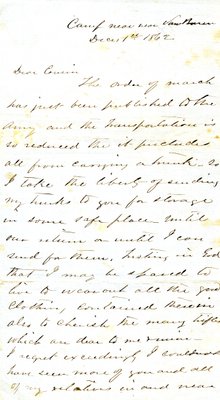 Camp near near Van Buren
Decr 1st 1862
Dear Cousin
The order of march
has just been published to the
Army and the Transportation is
so reduced that it precludes
all from carrying a trunk - so
I take the liberty of sending
my trunks to you for storage
in some safe place, until
our return or until I can
send for them, trusting in God
that I may be spared to
live to wear out all the good
Clothing contained therein
also to cherish the many gifts
which are dear to me
I regret exceedingly I could not
have seen more of you and all
of my relatives in and near